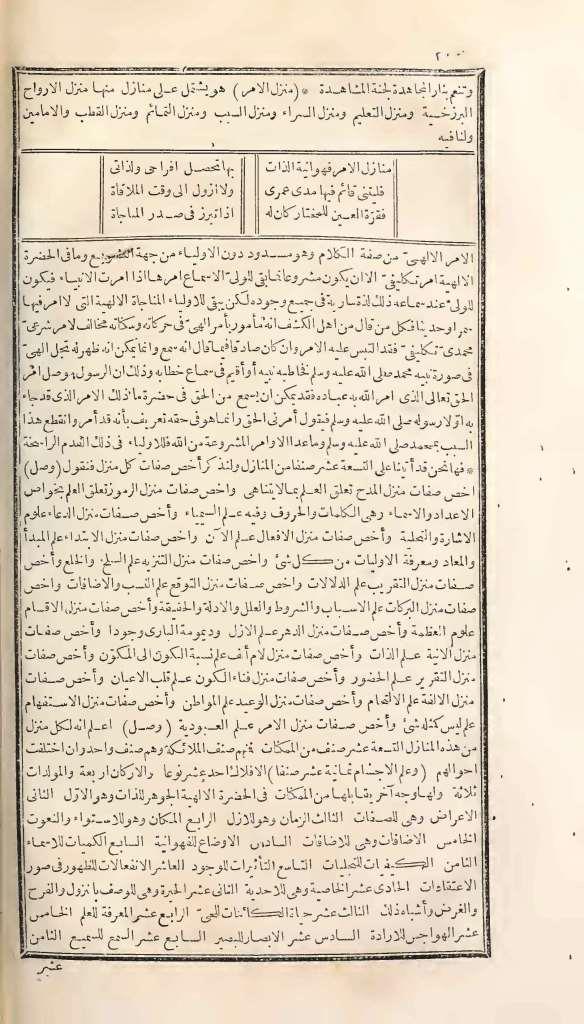 ٢٠٠
وتنعم بنار المجاهدة لجنة المشاهدة * (منزل الامر) هو يشتمل على منازل منها منزل الارواح
البرزخية ومنزل التعليم ومنزل السراء ومنزل السبب ومنزل التمائم ومنزل القطب والامامين
ولنافيه
منازل الامر فهوانية الذات بها تحصل افراحى ولذاتى
فليتنى قائم فيها مدى عمرى ولا ازول الى وقت الملاقاة
فقرّة العين للمختار كان له اذا تبرز فى صدر المناجاة
الامر الالهىّ من صفة الكلام وهو مسدود دون الاولياء من جهة التشريع وما فى الحضرة
الالهية امر تكليفىّ الا ان يكون مشروعا فما بقى للولىّ الا سماع امرها اذا امرت الانبياء فيكون
للولىّ عند سماعه ذلك لذة سارية فى جميع وجوده لكن يبقى للاولياء المناجاة الالهية التى لا امر فيها
سمرا وحديثا فكل من قال من اهل الكشف انه مأمور بأمر الهىّ فى حركاته وسكناته مخالف لامر شرعىّ
محمدىّ تكليفىّ فقد التبس عليه الامر وان كان صادقا فيما قال انه سمع وانما يمكن انه ظهر له تجل الهىّ
فى صورة نبيه محمد صلى الله عليه وسلم فخاطبه نبيه أو أقيم فى سماع خطابه وذلك ان الرسول موصل امر
الحق تعالى الذى امر الله به عباده فقد يمكن ان يسمع من الحق فى حضرة ما ذلك الامر الذى قد جاء
به اوّلا رسوله صلى الله عليه وسلم فيقول أمرنى الحق وانما هو فى حقه تعريف بأنه قد أمر وانقطع هذا
السبب بمحمد صلى الله عليه وسلم وما عدا الاوامر المشروعة من الله فللاولياء فى ذلك القدم الراسخة
* فها نحن قد أتينا على التسعة عشر صنفا من المنازل ولنذكر أخص صفات كل منزل فنقول (وصل)
اخص صفات منزل المدح تعلق العلم بما لا يتناهى واخص صفات منزل الرموز تعلق العلم بخواص
الاعداد والاسماء وهى الكلمات والحروف وفيه علم السيمياء وأخص صفات منزل الدعاء علوم
الاشارة والتحلية وأخص صفات منزل الافعال علم الآن واخص صفات منزل الابتداء علم المبدأ
والمعاد ومعرفة الاوليات من كل شئ واخص صفات منزل التنزيه علم السلخ والخلع وأخص
صفات منزل التقريب علم الدلالات واخص صفات منزل التوقع علم النسب والاضافات واخص
صفات منزل البركات علم الاسباب والشروط والعلل والادلة والحقيقة وأخص صفات منزل الاقسام
علوم العظمة وأخص صفات منزل الدهر علم الازل وديمومة البارى وجودا وأخص صفات
منزل الانية علم الذات وأخص صفات منزل لام ألف علم نسبة الكون الى المكوّن وأخص صفات
منزل التقرير علم الحضور وأخص صفات منزل فناء الكون علم قلب الاعيان وأخص صفات
منزل الالفة علم الالتحام وأخص صفات منزل الوعيد علم المواطن وأخص صفات منزل الاستفهام
علم ليس كمثله شئ وأخص صفات منزل الامر علم العبودية (وصل) اعلم انه لكل منزل
من هذه المنازل التسعة عشر صنف من الممكنات فمنهم صنف الملائكة وهم صنف واحد وان اختلفت
احوالهم (وعلم الاجسام ثمانية عشر صنفا) الافلاك احد عشر نوعا والاركان اربعة والمولدات
ثلاثة ولها وجه آخر يقابلها من الممكنات فى الحضرة الالهية الجوهر للذات وهو الاوّل الثانى
الاعراض وهى للصفات الثالث الزمان وهو للازل الرابع المكان وهو للاستواء والنعوت
الخامس الاضافات وهى للاضافات السادس الاوضاع للفهوانية السابع الكميات للاسماء
الثامن الكيفيات للتجليات التاسع التأثيرات للوجود العاشر الانفعالات للظهور فى صور
الاعتقادات الحادى عشر الخاصية وهى للاحدية الثانى عشر الحيرة وهى للوصف بالنزول والفرح
والغرض وأشباه ذلك الثالث عشر حياة الكائنات للحىّ الرابع عشر المعرفة للعلم الخامس
عشر الهواجس للارادة السادس عشر الابصار للبصير السابع عشر السمع للسميع الثامن
عشر